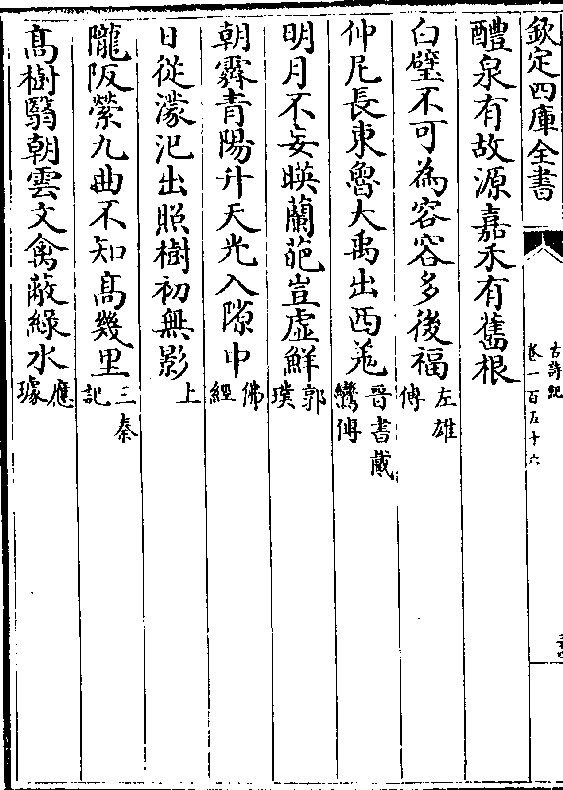 欽定四庫全書
古詩紀
卷一百五十六
醴泉有故源嘉禾有舊根
白璧不可為容容多後福左雄傳
仲尼長東魯大禹出西羌晉書戴鸞傳
明月不妄映蘭葩豈虛鮮郭璞
朝霽青陽升天光入隙中佛經
日從濛汜出照樹初無影上
隴阪縈九曲不知高幾里三秦記
髙樹翳朝雲文禽蔽綠水應璩